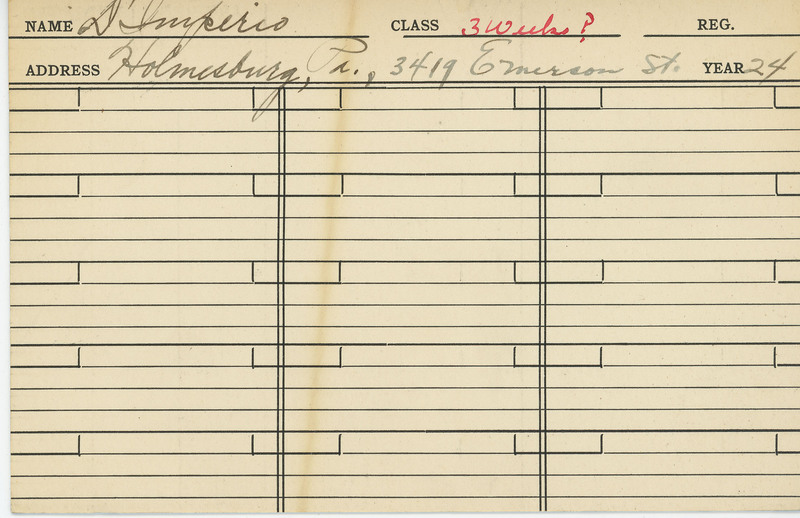 NAME D'Imperio CLASS 3 Weeks? REG.
ADDRESS Holmesburg, Pa., 3419 Emerson St. YEAR 24